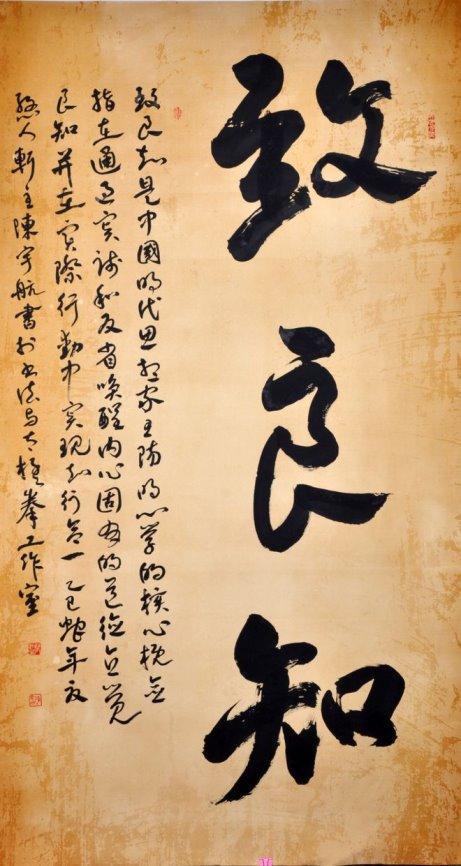 致良知
致良知是中國明代思想家王陽明心學的核心概念
指在通過實踐和反省喚醒內心固有的道德直覺
良知并在實際行動中實現知行合一乙巳蛇年夏
人軒主陳宇航書於书法与太極拳工作室